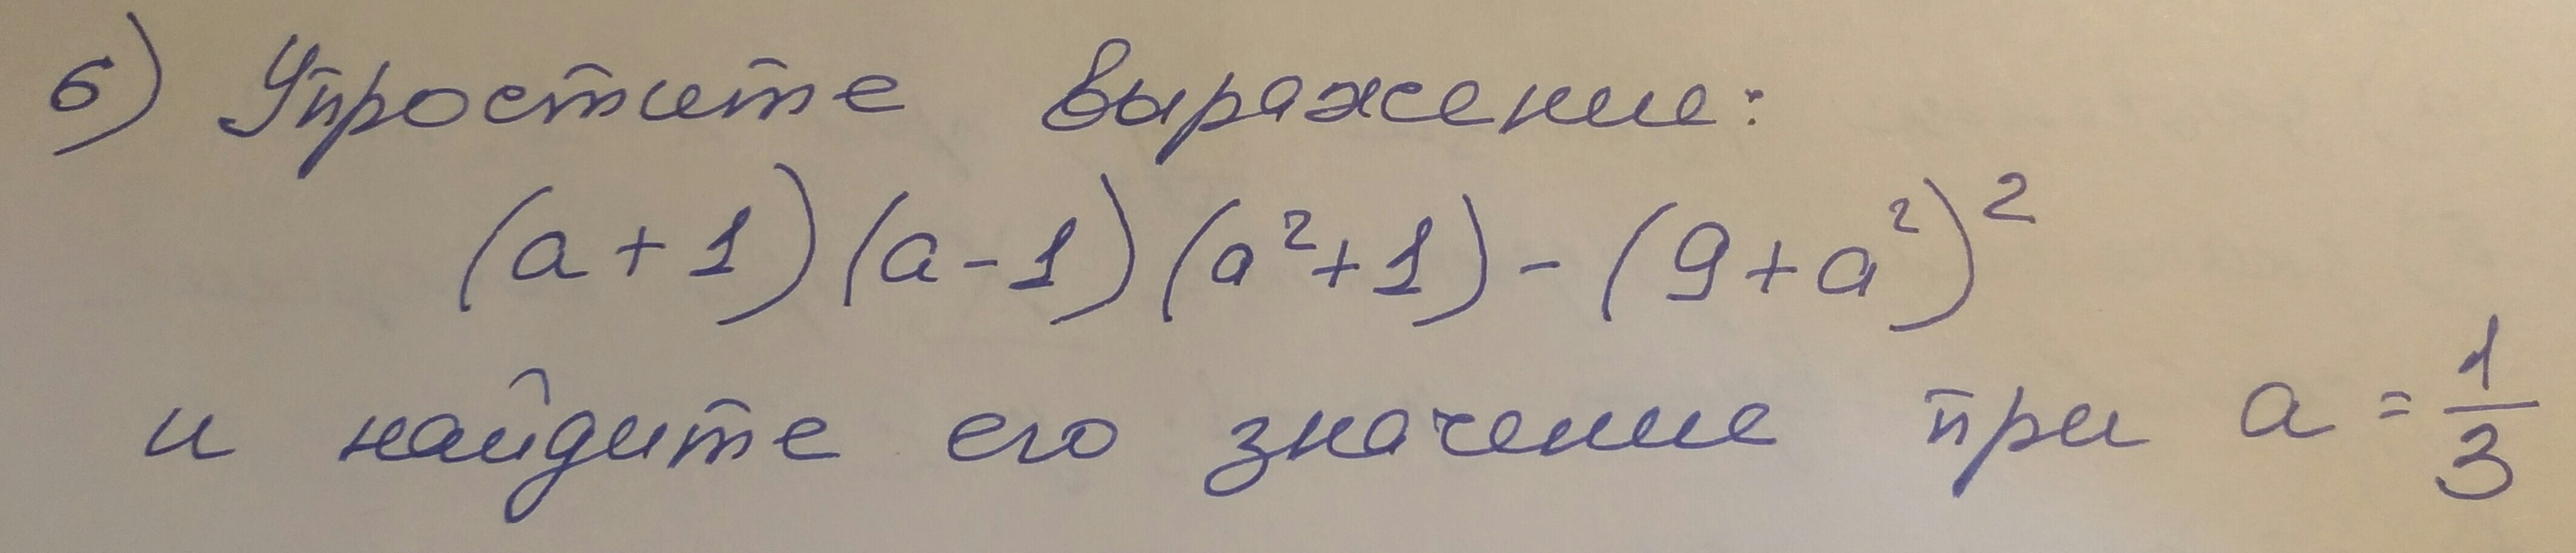 б) Упростите выражение:
(a+1)(a-1)(a²+1)-(9+a²)²
и найдите его значение при a = 1/3